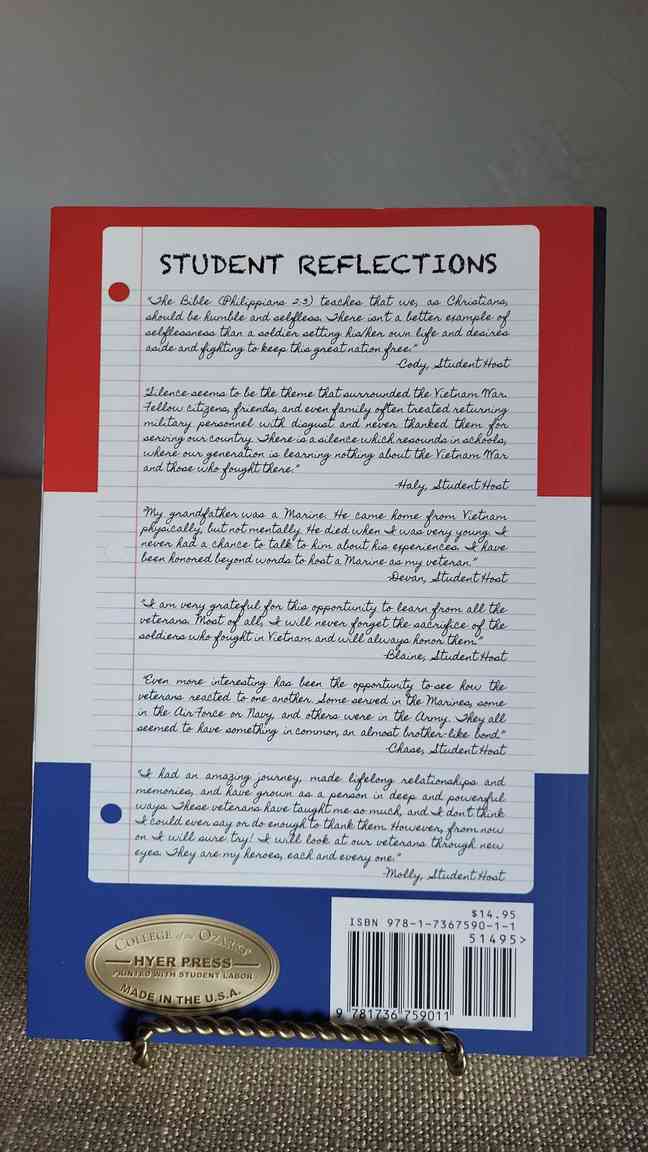 STUDENT REFLECTIONS
"The Bible (Philippians 2:3) teaches that we, as Christians,
should be humble and selfless. There isn't a better example of
selflessness than a soldier setting his/her own life and desires
aside and fighting to keep this great nation free."
-Cody, Student Host
"Silence seems to be the theme that surrounded the Vietnam War.
Fellow citizens, friends, and even family often treated returning
military personnel with disgust and never thanked them for
serving our country. There is a silence which resounds in schools,
where our generation is learning nothing about the Vietnam War
and those who fought there."
-Haly, Student Host
"My grandfather was a Marine. He came home from Vietnam
physically, but not mentally. He died when I was very young. I
never had a chance to talk to him about his experiences. I have
been honored beyond words to host a Marine as my veteran."
-Devan, Student Host
"I am very grateful for this opportunity to learn from all the
veterans. Most of all, I will never forget the sacrifice of the
soldiers who fought in Vietnam and will always honor them."
-Blaine, Student Host
"Even more interesting has been the opportunity to see how the
veterans reacted to one another. Some served in the Marines, some
in the Air Force or Navy, and others were in the Army. They all
seemed to have something in common, an almost brother-like bond."
-Chase, Student Host
"I had an amazing journey, made lifelong relationships and
memories, and have grown as a person in deep and powerful
ways. These veterans have taught me so much, and I don't think
I could ever say or do enough to thank them. However, from now
on I will sure try! I will look at our veterans through new
eyes. They are my heroes, each and every one."
-Molly, Student Host
COLLEGE of the OZARKS
HYER PRESS
PRINTED WITH STUDENT LABOR
MADE IN THE U.S.A.
$14.95
ISBN 978-1-7367590-1-1
51495>
9 781736 759011